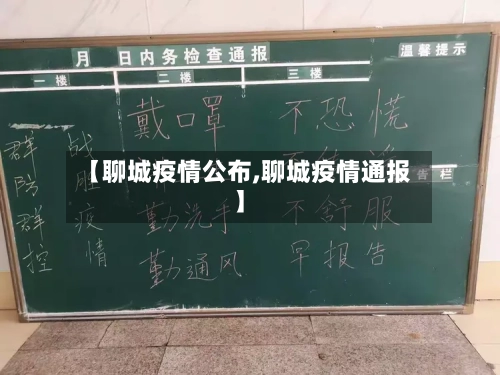 月 日内务检查通报
温馨提示
一楼 二楼 三楼
戴口罩 不恐慌
群防群控
战胜疫情
【聊城疫情公布,聊城疫情通报
】
告栏
勤洗手 不舒服
勤通风 早报告